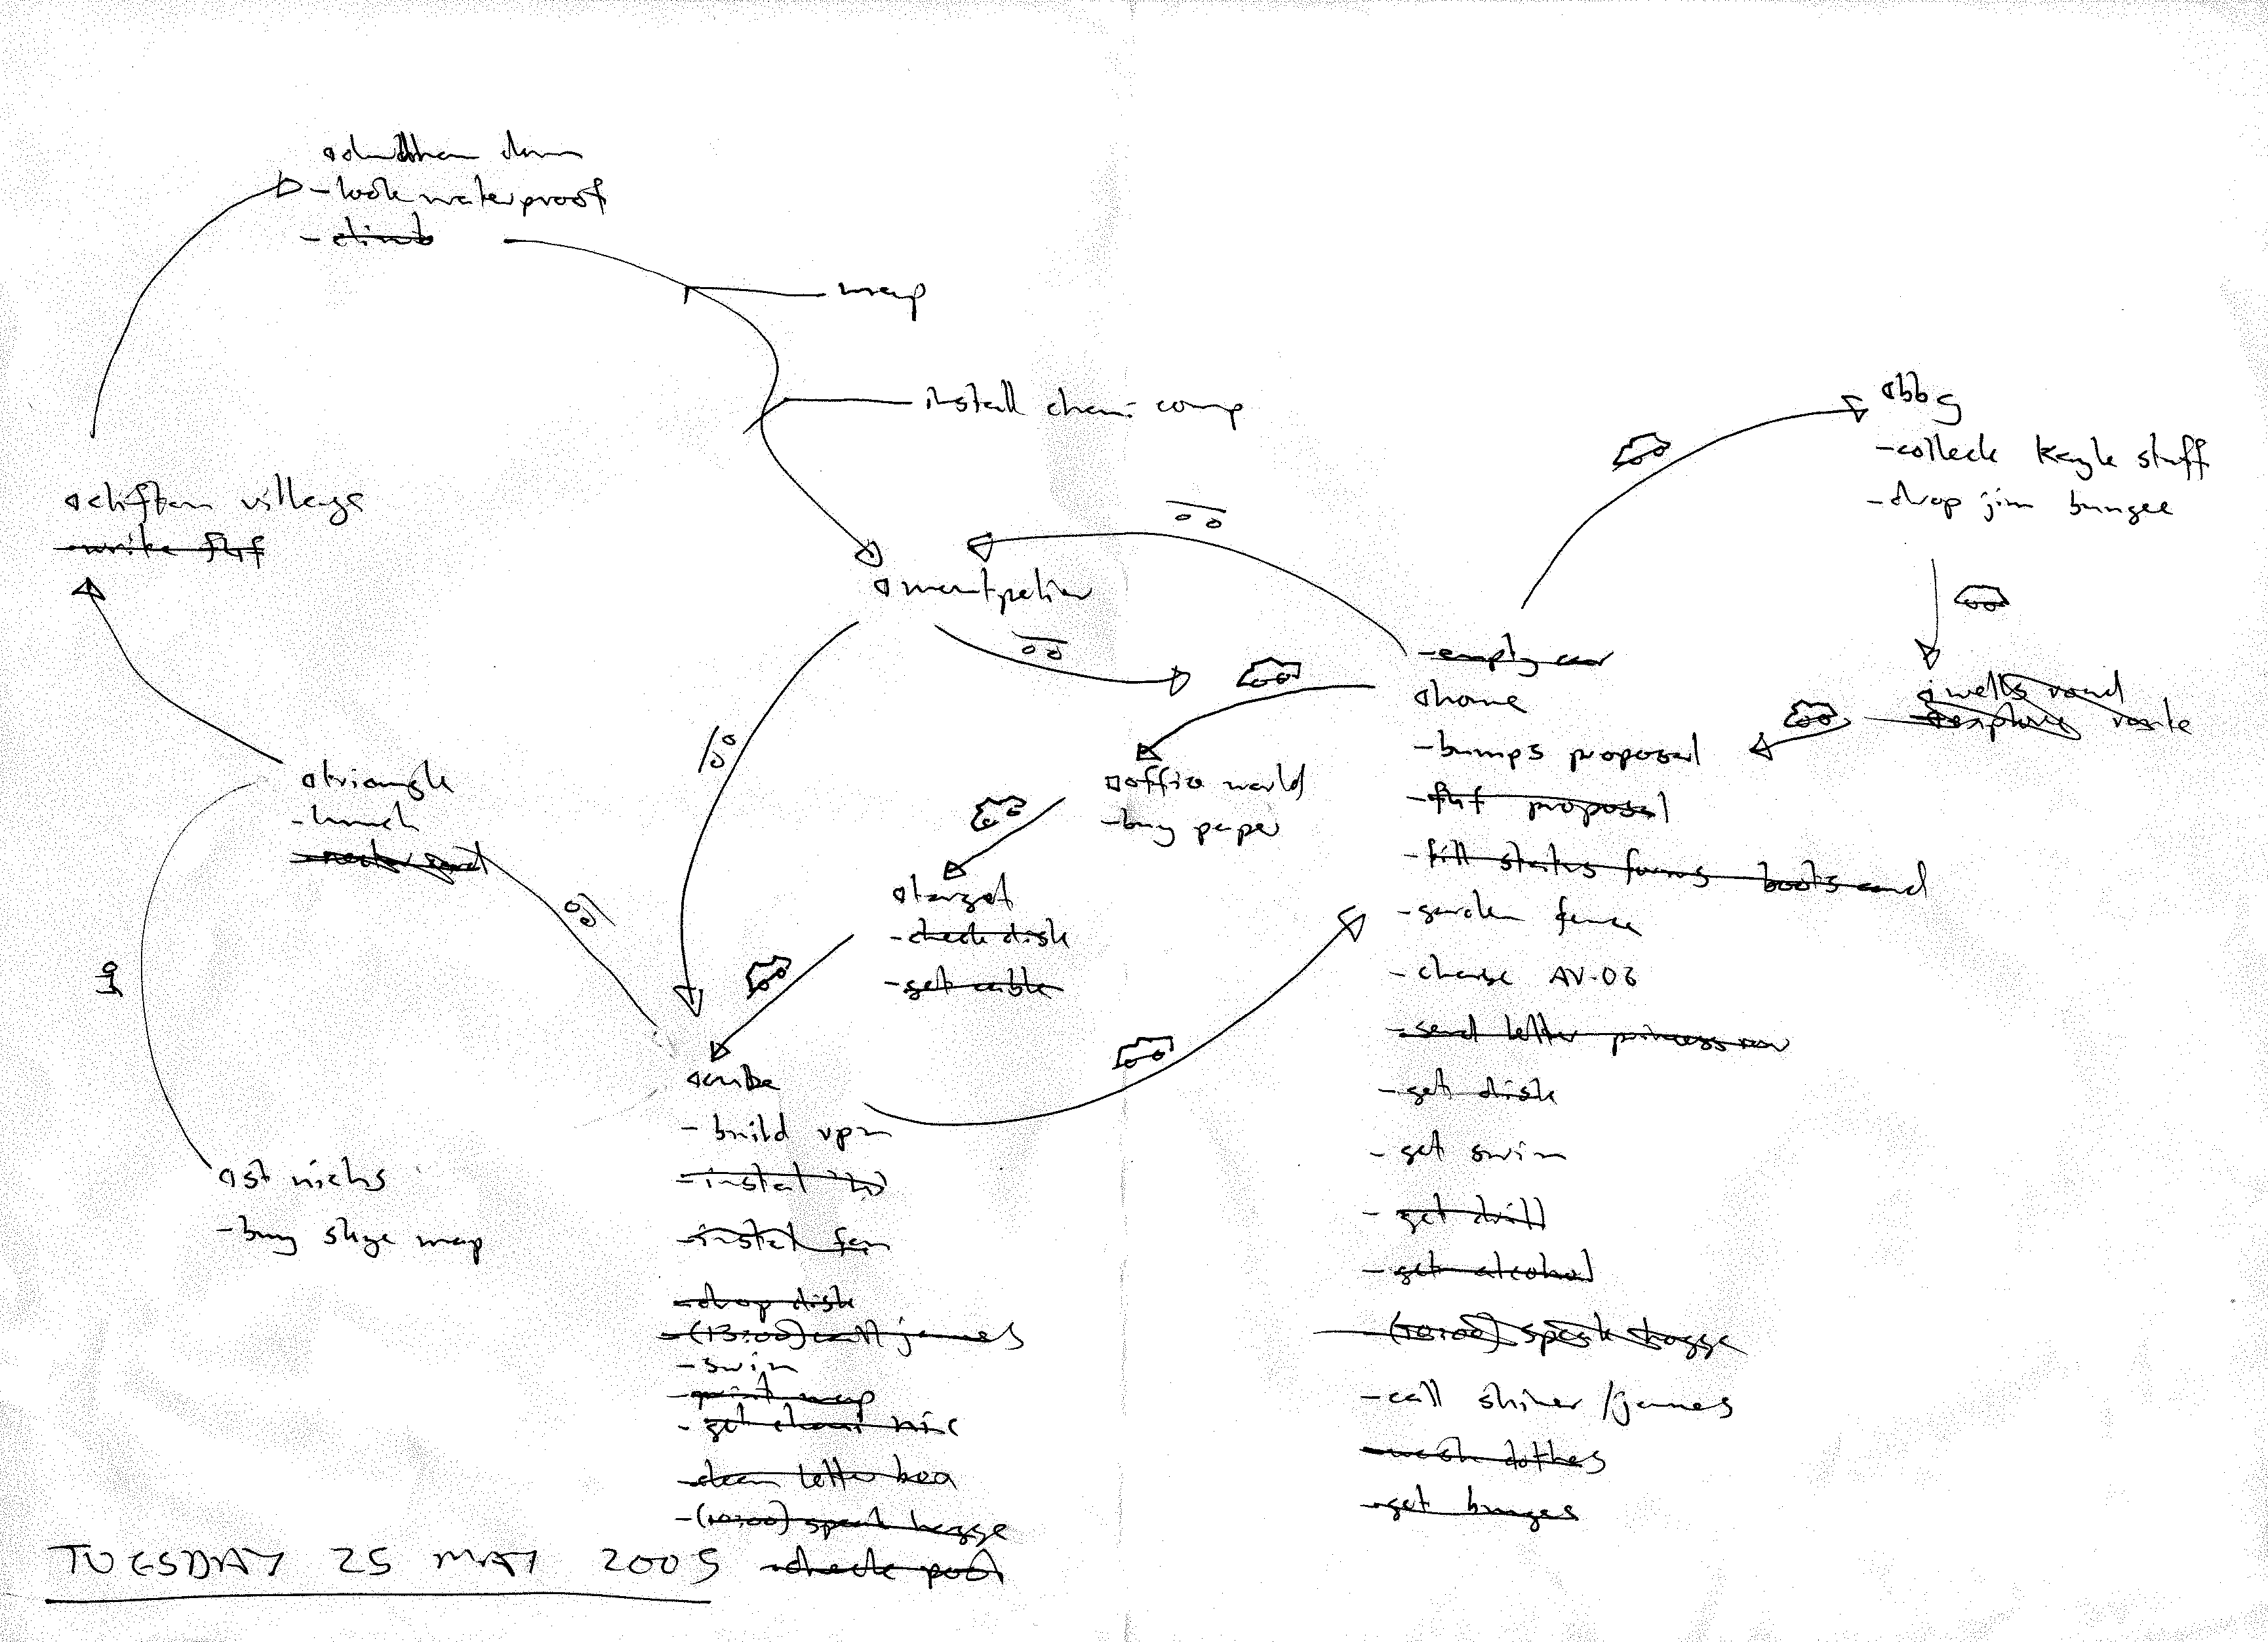 @durdham down
- look waterproof
- climb
map
install chemi comp
@clifton village
- write fhf
@montpelier
@bbg
- collect kayle stuff
- drop jim bungee
@wells road
route
- empty car
@home
- bumps proposal
- fhf proposal
- fill status forms boots card
- garden fence
- charge AV-06
- send letter princess row
- get disk
- get swim
- get drill
- get alcohol
- (10:00) speak hogge
- call shiner/james
- wash clothes
- get bunges
@office world
- buy paper
@target
- check disk
- get cable
@triangle
- lunch
@cube
- build vpn
- instal
- instal fan
- drop disk
- (13:00) call james
- swim
- print map
- get chemi nic
- clean letter box
- (10:00) speak hogge
- check post
@st nichs
- buy skye map
TUESDAY 25 MAY 2005